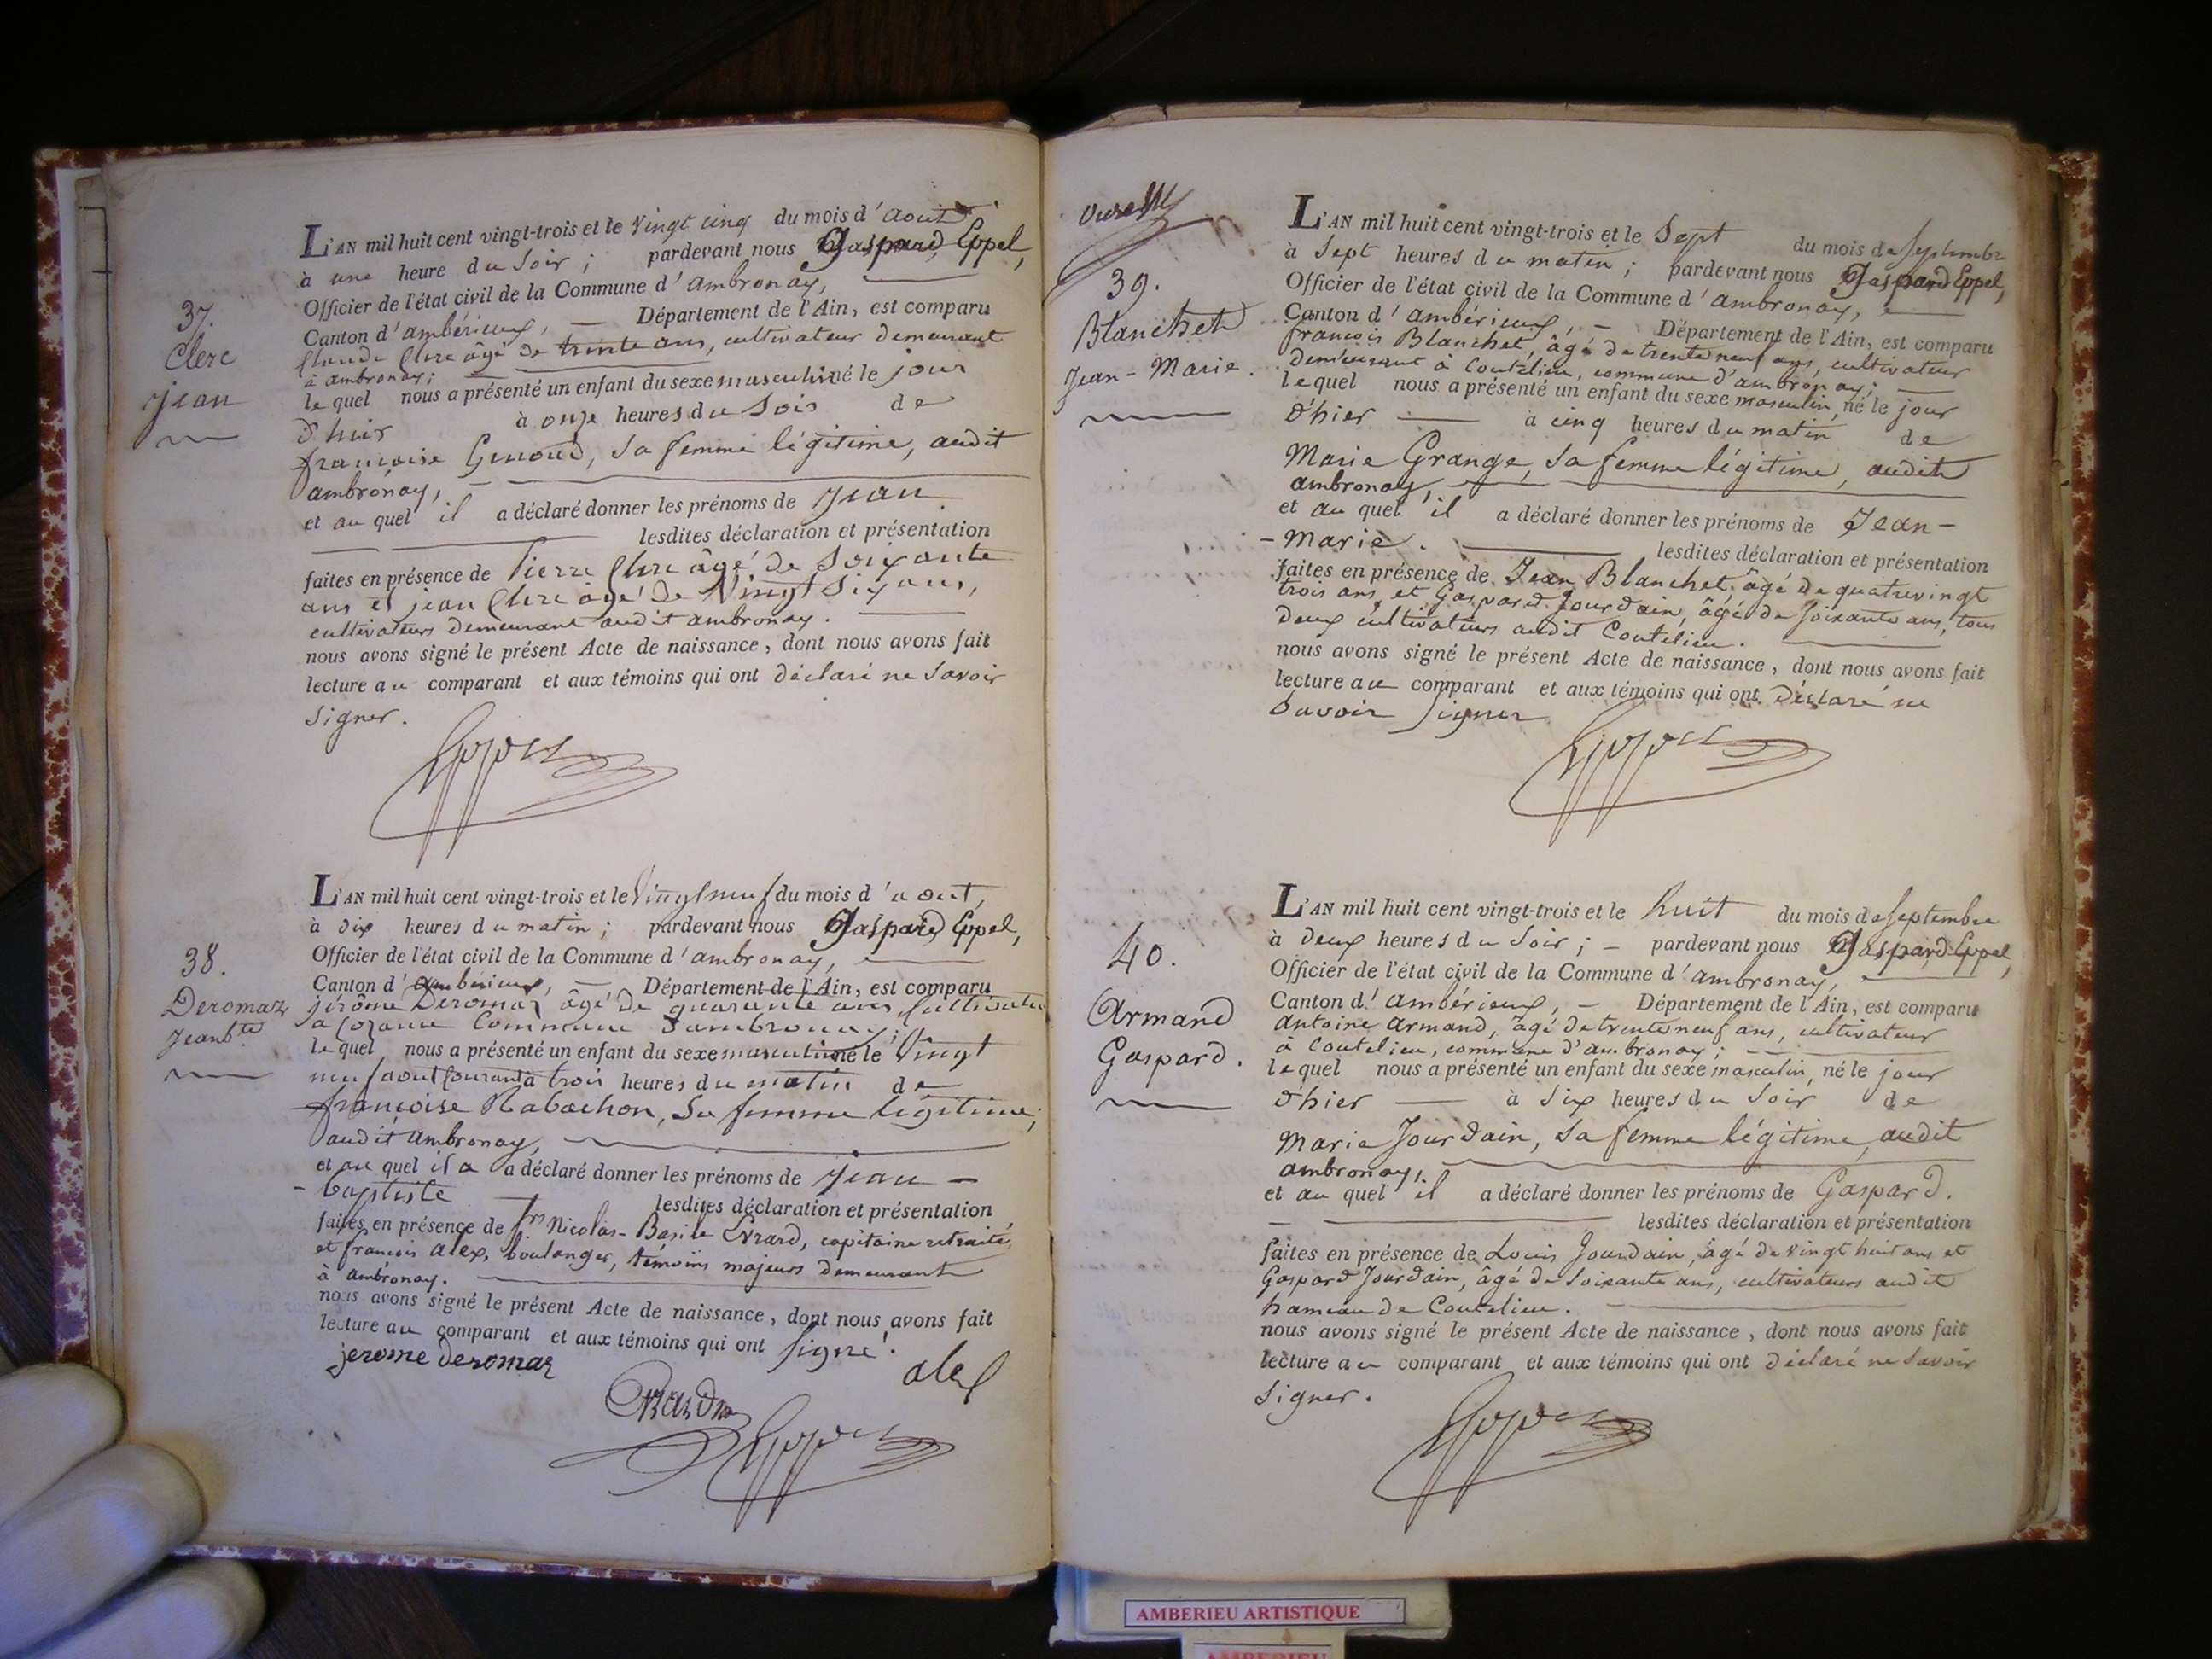 37.
Clerc
jean
L'AN mil huit cent vingt-trois et le vingt cinq du mois d'aout
à une heure du soir ; pardevant nous Gaspard Eppel,
Officier de l'état civil de la Commune d'ambronay,
Canton d'ambérieux, — Département de l'Ain, est comparu
Claude Clerc âgé de trente ans, cultivateur demeurant
à ambronay;
lequel nous a présenté un enfant du sexe masculin né le jour
d'hier à onze heures du soir de
françoise Genoud, sa femme légitime, audit
ambronay,
et au quel il a déclaré donner les prénoms de jean
lesdites déclaration et présentation
faites en présence de Pierre Clerc âgé de soixante
ans et jean Clerc agé de vingt six ans,
cultivateurs demeurant audit ambronay.
nous avons signé le présent Acte de naissance, dont nous avons fait
lecture au comparant et aux témoins qui ont déclaré ne savoir
signer.
Eppel
38.
Deromaz
jean bte
L'AN mil huit cent vingt-trois et le vingt neuf du mois d'aout,
à dix heures du matin ; pardevant nous Gaspard Eppel,
Officier de l'état civil de la Commune d'ambronay,
Canton d'ambérieux, — Département de l'Ain, est comparu
jérôme Deromaz âgé de quarante ans Cultivateur
a Commune d'ambronay;
lequel nous a présenté un enfant du sexe masculin né le vingt
neuf aout courant à trois heures du matin de
françoise Rabachon, sa femme légitime,
audit ambronay,
et au quel il a a déclaré donner les prénoms de jean -
- baptiste lesdites déclaration et présentation
faites en présence de frs Nicolas-Basile Evrard, capitaine retraité,
et françois alex, boulanger, témoins majeurs demeurant
à ambronay.
nous avons signé le présent Acte de naissance, dont nous avons fait
lecture au comparant et aux témoins qui ont signé.
jerome deromaz
alex
Evrard
Eppel
39.
Blanchet
Jean-Marie.
L'AN mil huit cent vingt-trois et le sept du mois de septembre
à sept heures du matin ; pardevant nous Gaspard Eppel,
Officier de l'état civil de la Commune d'ambronay,
Canton d'ambérieux, — Département de l'Ain, est comparu
françois Blanchet, âgé de trente neuf ans, cultivateur
demeurant à Coutelieu, commune d'ambronay;
lequel nous a présenté un enfant du sexe masculin, né le jour
d'hier — à cinq heures du matin de
Marie Grange, sa femme légitime, audit
ambronay,
et au quel il a déclaré donner les prénoms de Jean-
- Marie. lesdites déclaration et présentation
faites en présence de Jean Blanchet âgé de quatrevingt
trois ans, et Gaspard Jourdain, âgé de soixante ans, tous
deux cultivateurs audit Coutelieu.
nous avons signé le présent Acte de naissance, dont nous avons fait
lecture au comparant et aux témoins qui ont déclaré ne
savoir signer
Eppel
40.
Armand
Gaspard.
L'AN mil huit cent vingt-trois et le huit du mois de septembre
à deux heures du soir ; — pardevant nous Gaspard Eppel,
Officier de l'état civil de la Commune d'ambronay,
Canton d'ambérieux, — Département de l'Ain, est comparu
antoine armand, âgé de trente neuf ans, cultivateur
à Coutelieu, commune d'ambronay;
lequel nous a présenté un enfant du sexe masculin, né le jour
d'hier — à six heures du soir de
Marie Jourdain, sa femme légitime, audit
ambronay,
et au quel il a déclaré donner les prénoms de Gaspard.
lesdites déclaration et présentation
faites en présence de Louis Jourdain, âgé de vingt huit ans et
Gaspard Jourdain, âgé de soixante ans, cultivateurs audit
hameau de Coutelieu.
nous avons signé le présent Acte de naissance, dont nous avons fait
lecture au comparant et aux témoins qui ont déclaré ne savoir
signer.
Eppel
AMBERIEU ARTISTIQUE
AMBERIEU